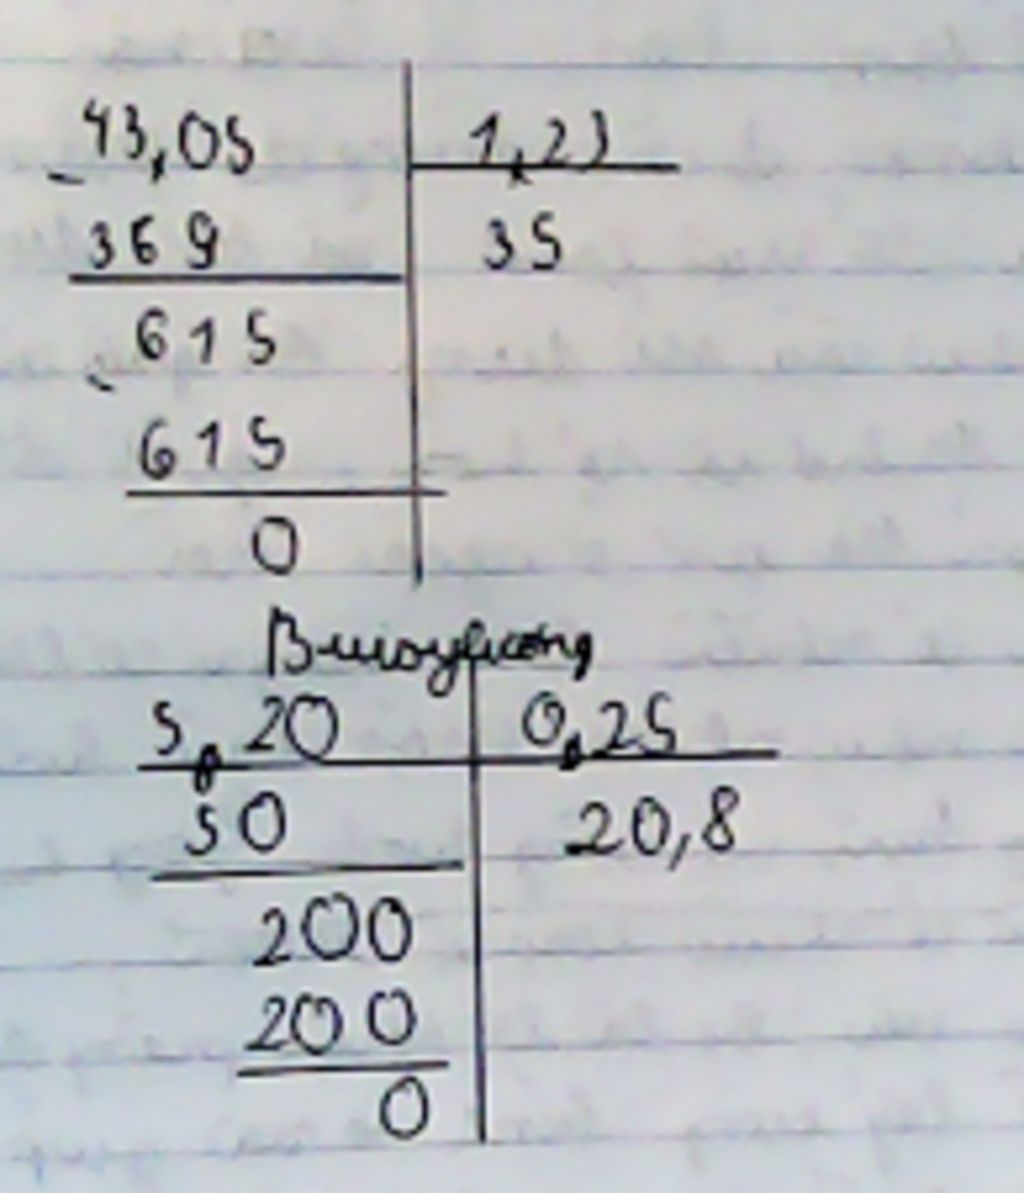 43,05 1,23
- 369 35
615
- 615
0
5,20 0,25
50 20,8
200
200
0